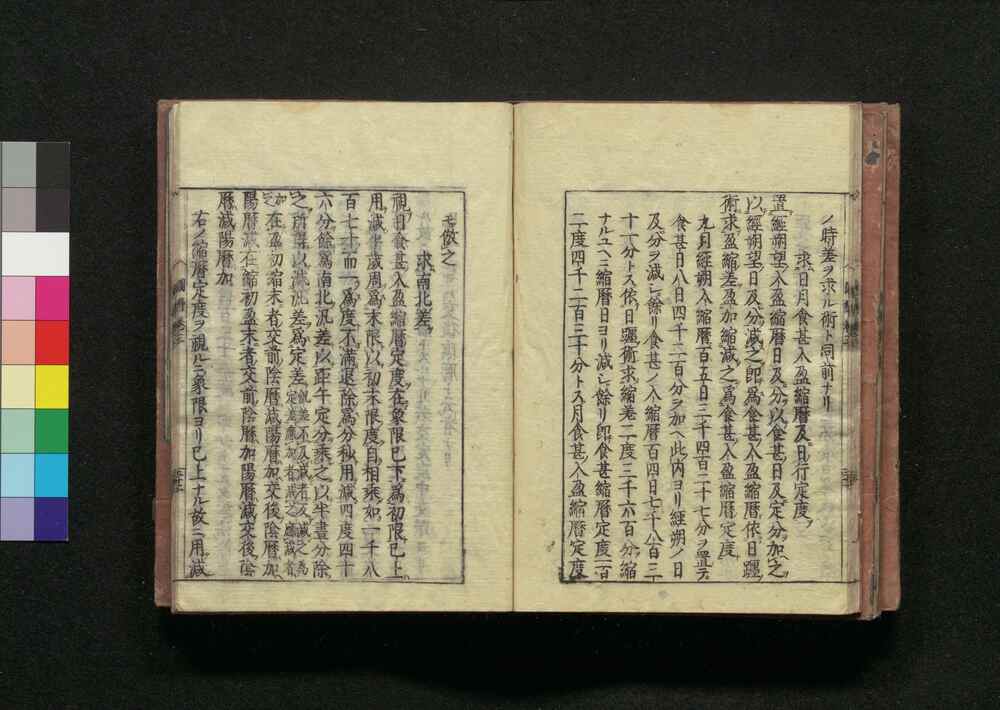 ノ時差ヲ求ル術ト同前ナリ
求日月食甚入盈縮曆及日行定度
置經朔望入盈縮曆日及分以食甚日及定分加之
以經朔望日及分減之即爲食甚入盈縮曆依日躔
術求盈縮差盈加縮減之爲食甚入盈縮曆定度
九月經朔入縮曆百五日三千四百二十七分ヲ置テ
食甚日八日四千二百分ヲ加ヘ此内ヨリ經朔ノ日
及分ヲ減シ餘リ食甚ノ入縮曆百四日七千八百三
十一分トス依日躔術求縮差二度三千六百分縮
ナルユヘニ縮曆日ヨリ減シ餘リ即食甚縮曆定度一百
二度四千二百三十分トス月食甚入盈縮曆定度
モ倣之
求南北差
視日食甚入盈縮曆定度在象限已下爲初限已上
用減半歲周爲末限以初末限度自相乘如一千八
百七十而一爲度不滿退除爲分秒用減四度四十
六分餘爲南北汎差以距午定分乘之以半晝分除
之所得以減汎差爲定差汎差不及減者反減之爲定差應加者減之應減者加之
在盈初縮末者交前陰曆減陽曆加交後陰曆加
陽曆減在縮初盈末者交前陰曆加陽曆減交後陰
曆減陽曆加
右ノ縮曆定度ヲ視ルニ象限ヨリ已上ナル故ニ用減